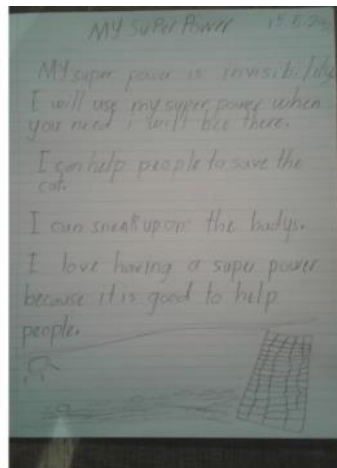 My super Power
My super power is invisibility
I will use my super power when
you need i will bee there.
I can help people to save the
cat.
I can sneak upon the badys.
I love having a super power
because it is good to help
people.